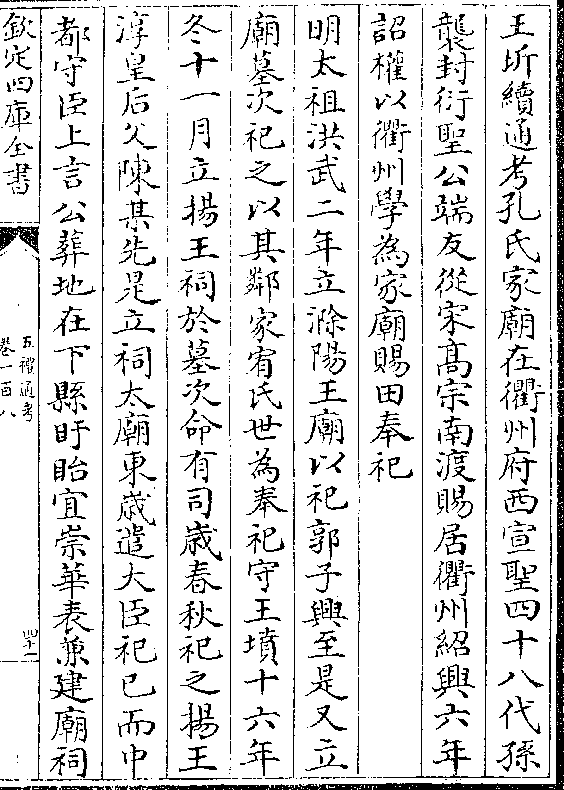 王圻續通考孔氏家廟在衢州府西宣聖四十八代孫
襲封衍聖公端友從宋髙宗南渡賜居衢州紹興六年
詔權以衢州學為家廟賜田奉祀
明太祖洪武二年立滁陽王廟以祀郭子興至是又立
廟墓次祀之以其鄰家宥氏世為奉祀守王墳十六年
冬十一月立揚王祠於墓次命有司歳春秋祀之揚王
淳皇后父陳某先是立祠太廟東歳遣大臣祀已而中
都守臣上言公葬地在下縣盱眙宜崇華表兼建廟祠
欽定四庫全書
五禮通考
卷一百八
四十一